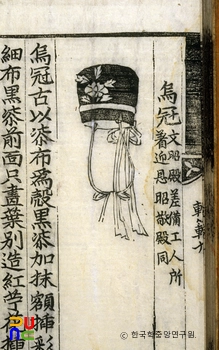 烏冠 文昭殿差備工人所
著延恩昭敬殿同
烏冠古以漆布爲殼黑漆加抹額插彩
細布黑漆前面只畫葉別造紅苧
© 한국학중앙연구원